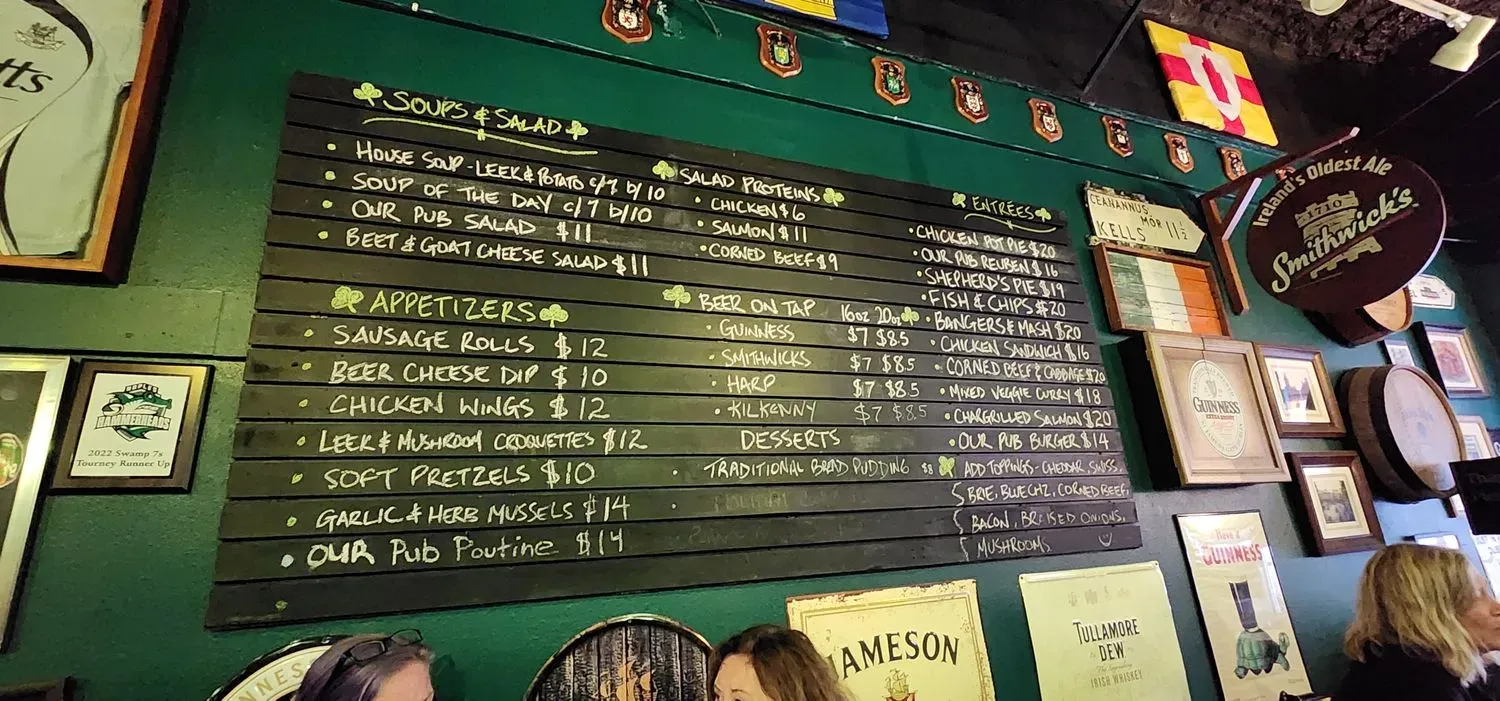 SOUPS & SALAD
• HOUSE SOUP - LEEK & POTATO C/7 B/10
• SOUP OF THE DAY C/7 B/10
• OUR PUB SALAD $11
• BEET & GOAT CHEESE SALAD $11
APPETIZERS
• SAUSAGE ROLLS $12
• BEER CHEESE DIP $10
• CHICKEN WINGS $12
• LEEK & MUSHROOM CROQUETTES $12
• SOFT PRETZELS $10
• GARLIC & HERB MUSSELS $14
• OUR Pub Poutine $14
SALAD PROTEINS
• CHICKEN $6
• SALMON $11
• CORNED BEEF $9
BEER ON TAP 16oz 20oz
• GUINNESS $7 $8.5
• SMITHWICKS $7 $8.5
• HARP $7 $8.5
• KILKENNY $7 $8.5
DESSERTS
• TRADITIONAL BREAD PUDDING $8
ENTRÉES
• CHICKEN POT PIE $20
• OUR PUB REUBEN $16
• SHEPHERD'S PIE $19
• FISH & CHIPS $20
• BANGERS & MASH $20
• CHICKEN SANDWICH $16
• CORNED BEEF & CABBAGE $20
• MIXED VEGGIE CURRY $18
• CHARGRILLED SALMON $20
• OUR PUB BURGER $14
ADD TOPPINGS - CHEDDAR, SWISS,
BRIE, BLUE CHZ, CORNED BEEF,
BACON, BRAISED ONIONS,
MUSHROOMS
CEANANNUS
MÓR 11½
KELLS
Ireland's Oldest Ale
Smithwick's
GUINNESS
NAPLES
HAMMERHEADS
2022 Swamp 7s
Tourney Runner Up
JAMESON
TULLAMORE
DEW
IRISH WHISKEY
Have a
GUINNESS